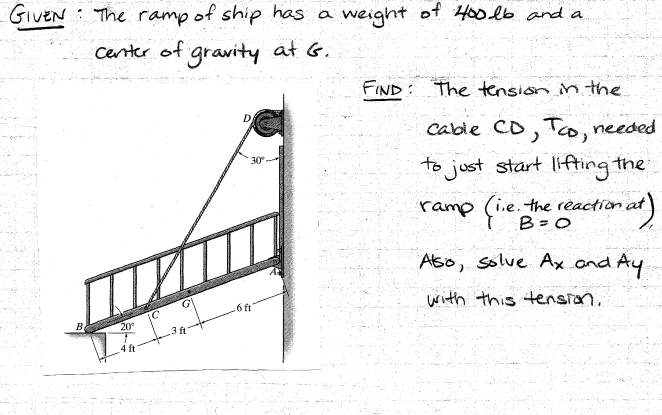 GIVEN : The ramp of ship has a weight of 400 lb and a
center of gravity at G.
FIND : The tension in the
cable CD, TCD, needed
to just start lifting the
ramp (i.e. the reaction at
B = 0).
Also, solve Ax and Ay
with this tension.
D
30°
A
6 ft
G
C
3 ft
B
20°
4 ft